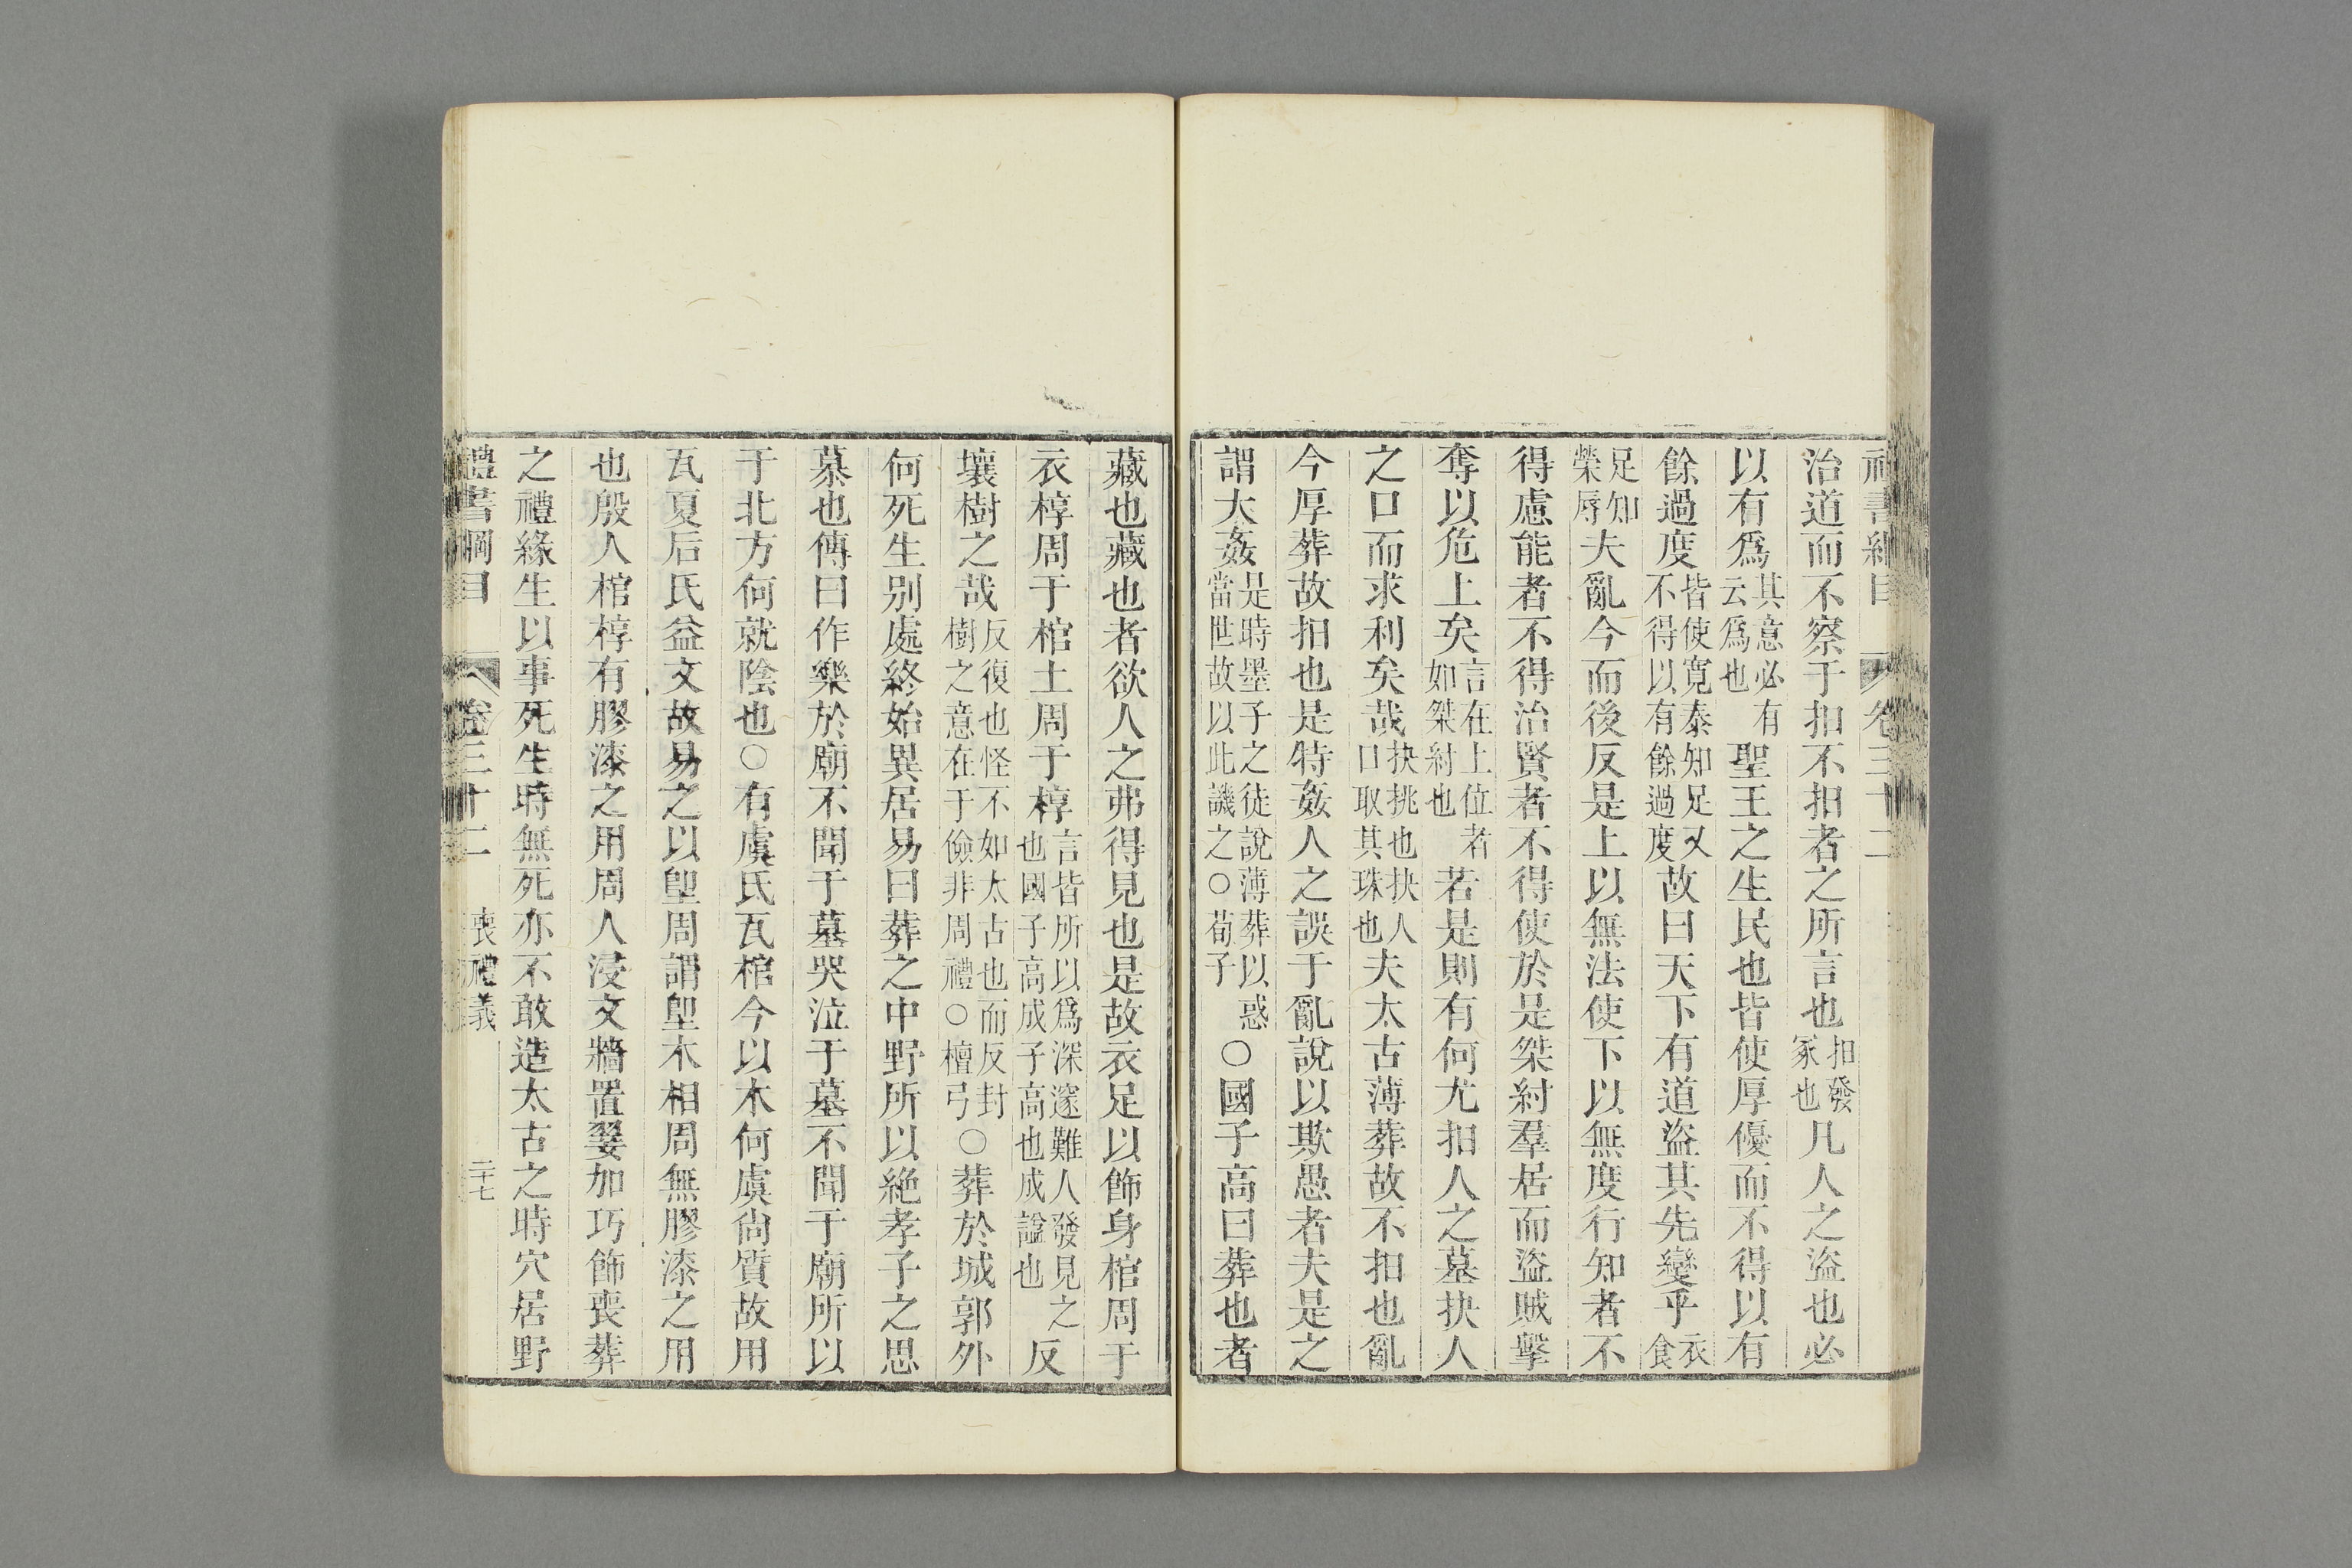 禮書綱目 卷三十二
治道而不察于抇不抇者之所言也抇發冢也凡人之盜也必
以有爲其意必有云爲也聖王之生民也皆使厚優而不得以有
餘過度皆使寬泰知足又不得以有餘過度故曰天下有道盜其先變乎衣食
足知榮辱夫亂今而後反是上以無法使下以無度行知者不
得慮能者不得治賢者不得使於是桀紂羣居而盜賊擊
奪以危上矣言在上位者如桀紂也若是則有何尤抇人之墓抉人
之口而求利矣哉抉挑也抉人口取其珠也夫太古薄葬故不抇也亂
今厚葬故抇也是特姦人之誤于亂說以欺愚者夫是之
謂大姦是時墨子之徒說薄葬以惑當世故以此譏之○荀子○國子高曰葬也者
藏也藏也者欲人之弗得見也是故衣足以飾身棺周于
衣椁周于棺土周于椁言皆所以爲深邃難人發見之也國子高成子高也成諡也反
壤樹之哉反復也怪不如太古也而反封樹之意在于儉非周禮○檀弓○葬於城郭外
何死生别處終始異居易曰葬之中野所以絶孝子之思
慕也傳曰作樂於廟不聞于墓哭泣于墓不聞于廟所以
于北方何就陰也○有虞氏瓦棺今以木何虞尙質故用
瓦夏后氏益文故易之以堲周謂堲木相周無膠漆之用
也殷人棺椁有膠漆之用周人浸文牆置翣加巧飾喪葬
之禮緣生以事死生時無死亦不敢造太古之時穴居野
禮書綱目 卷三十二 喪禮義 二十七